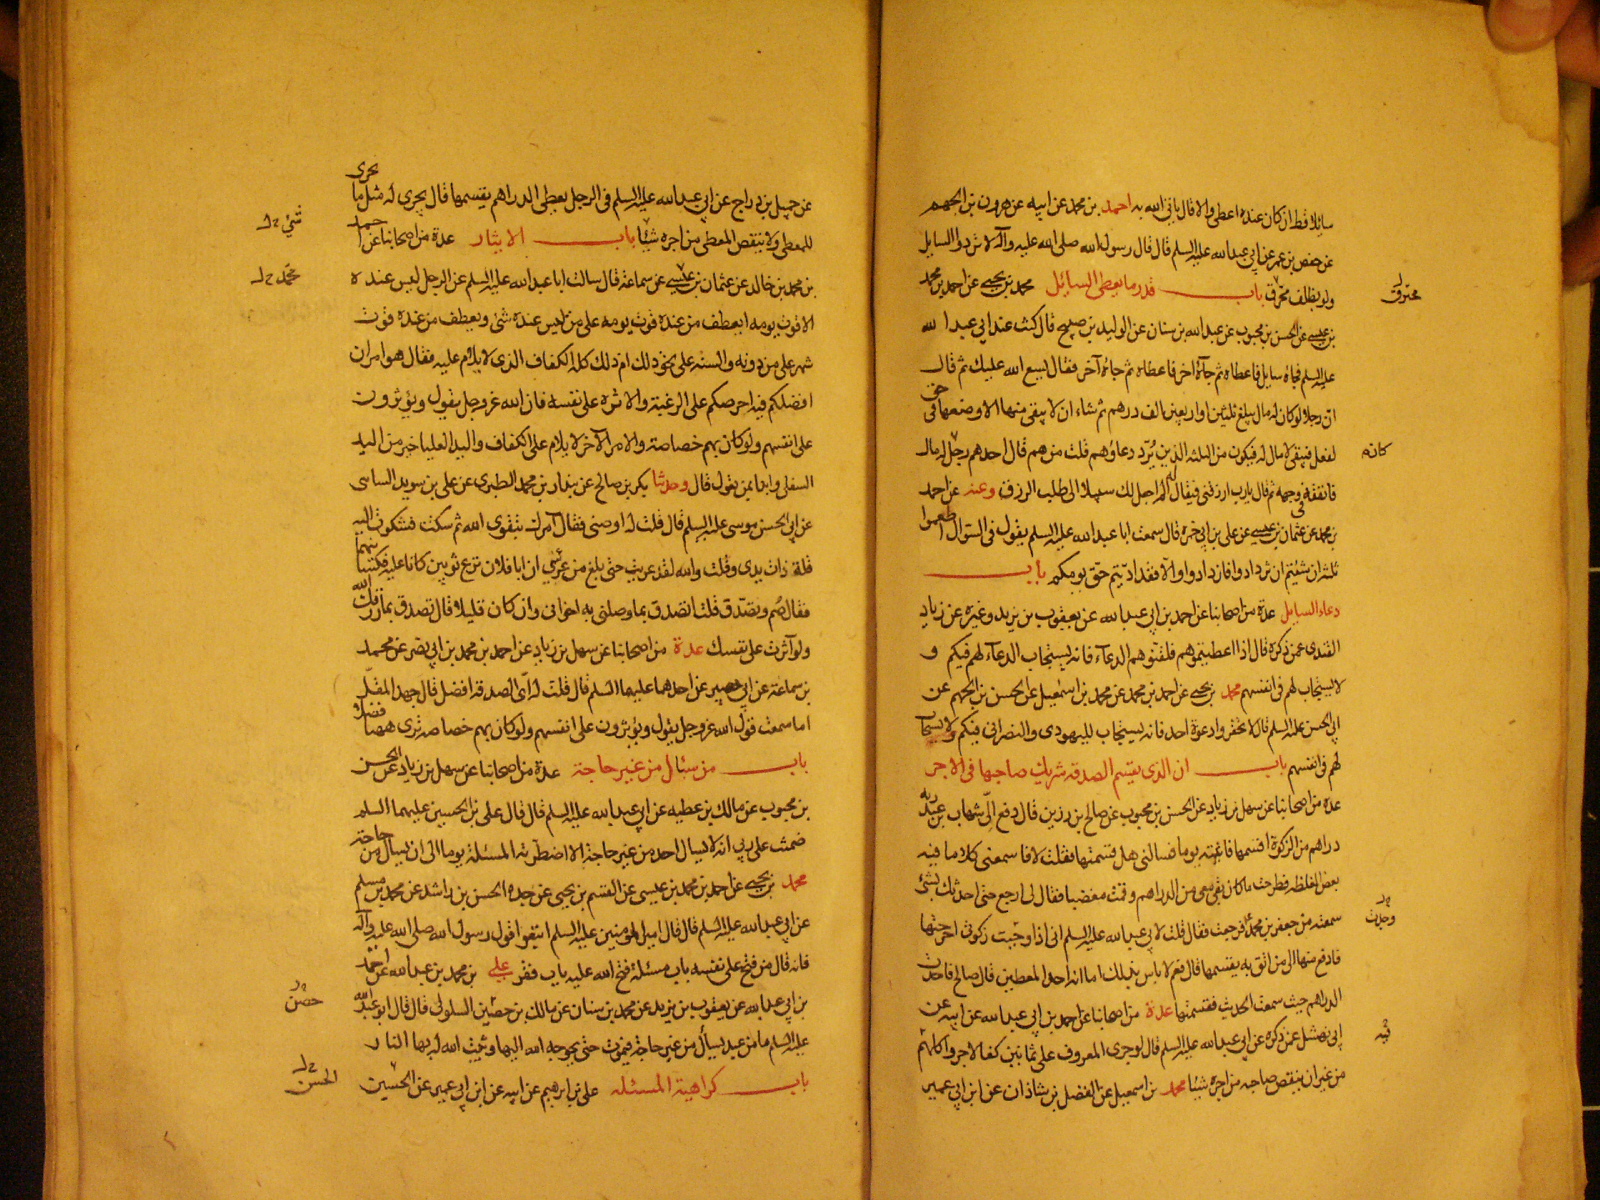 سائلا قط ان كان عنده اعطى والا قال ياتى الله به احمد بن محمد عن ابيه عن هرون بن الجهم
عن حفص بن عمر عن ابى عبد الله عليه السلم قال قال رسول الله صلى الله عليه وآله لا تردوا السايل
ولو بظلف محرق باب قدر ما يعطى السائل محمد بن يحيى عن احمد بن محمد
محترق
بن عيسى عن الحسن بن محبوب عن عبد الله بن سنان عن الوليد بن صبيح قال كنت عند ابى عبد الله
عليه السلم فجاه سايل فاعطاه ثم جاءه آخر فاعطاه ثم جاءه آخر فقال يسع الله عليك ثم قال
ان رجلا لو كان له مال يبلغ ثلثين او اربعين الف درهم ثم شاء ان لا يبقى منها الا وضعها فى حق
لفعل فيبقى لا مال له فيكون من الثلثه الذين يُرَد دعاؤهم قلت من هم قال احدهم رجل له مال
كان له
فانفقه فى وجهه ثم قال يارب ارزقنى فيقال له الم اجعل لك سبيلا الى طلب الرزق وعنه عن احمد
بن محمد عن عثمان بن عيسى عن على بن ابى حمزه قال سمعت ابا عبد الله عليه السلم يقول فى السؤال اطعموا
ثلثه ان شئتم ان تزدادوا فازدادوا والا فقد اديتم حق يومكم باب
دعاء السايل عدة من اصحابنا عن احمد بن ابى عبد الله عن يعقوب بن يزيد وغيره عن زياد
القندى عمن ذكره قال اذا اعطيتموهم فلقنوهم الدعاء فانه يستجاب الدعاء لهم فيكم و
لا يستجاب لهم فى انفسهم محمد بن يحيى عن احمد بن محمد عن محمد بن اسمعيل عن الحسن بن الجهم عن
ابى الحسن عليه السلم قال لا تحقروا دعوة احد فانه يستجاب لليهودى والنصرانى فيكم ولا يستجاب
لهم فى انفسهم باب ان الذى يقسم الصدقه شريك صاحبها فى الاجر
عدة من اصحابنا عن سهل بن زياد عن الحسن بن محبوب عن صالح بن رزين قال دفع الىّ شهاب بن عبد ربه
دراهم من الزكوة اقسمها فاتيته يوما فسالنى هل قسمتها فقلت لا فاسمعنى كلاما فيه
بعض الغلظه فطرحت ما كان بقى معى من الدراهم وقمت مغضبا فقال لى ارجع حتى احدثك بشئ
سمعته من جعفر بن محمد فرجعت فقال قلت لابى عبد الله عليه السلم انى اذا وجبت زكوتى اخرجتها
وجدت
فادفع منها الى من اثق به يقسمها قال نعم لا باس بذلك اما انه احد المعطين قال صالح فاخذت
الدراهم حيث سمعت الحديث فقسمتها عدة من اصحابنا عن احمد بن ابى عبد الله عن ابيه عن
ابى نهشل عمن ذكره عن ابى عبد الله عليه السلم قال لو جرى المعروف على ثمانين كفا لاجروا كلهم
فيه
من غير ان ينقص صاحبه من اجره شيئا محمد بن اسمعيل عن الفضل بن شاذان عن ابن ابى عمير
عن جميل بن دراج عن ابى عبد الله عليه السلم فى الرجل يعطى الدراهم يقسمها قال يجرى له مثل ما يجرى
للمعطى ولا ينقص المعطى من اجره شيئا باب الايثار عدة من اصحابنا عن احمد
شئ خ ل
بن محمد بن خالد عن عثمان بن عيسى عن سماعة قال سالت ابا عبد الله عليه السلم عن الرجل ليس عنده
محمد خ ل
الا قوت يومه ايعطف من عنده قوت يومه على من ليس عنده شئ ويعطف من عنده قوت
شهر على من دونه والسنه على نحو ذلك ام ذلك كله الكفاف الذى لا يلام عليه فقال هو امران
افضلكم فيه احرصكم على الرغبة والاثره على نفسه فان الله عز وجل يقول ويؤثرون
على انفسهم ولو كان بهم خصاصة والامر الآخر لا يلام على الكفاف واليد العليا خير من اليد
السفلى وابدا بمن يعول قال وحدثنا بكر بن صالح عن بندار بن محمد الطبرى عن على بن سويد السائى
عن ابى الحسن موسى عليه السلم قال قلت له اوصنى فقال آمرك بتقوى الله ثم سكت فشكوت اليه
قلة ذات يدى وقلت والله لقد عريت حتى بلغ من عريتى ان ابا فلان نزع ثوبين كانا عليه فكسانيهما
فقال صُم وتصدق قلت اتصدق بما وصلنى به اخوانى وان كان قليلا قال تصدق بما رزقك الله
ولو آثرت على نفسك عدة من اصحابنا عن سهل بن زياد عن احمد بن محمد بن ابى نصر عن محمد
بن سماعة عن ابى بصير عن احدهما عليهما السلم قال قلت له اىّ الصدقه افضل قال جهد المقل
اما سمعت قول الله عز وجل يقول ويؤثرون على انفسهم ولو كان بهم خصاصه ترى ههنا فضلا
باب من سئال من غير حاجة عدة من اصحابنا عن سهل بن زياد عن الحسن
بن محبوب عن مالك بن عطيه عن ابى عبد الله عليه السلم قال قال على بن الحسين عليهما السلم
ضمنت على ربى انه لا يسال احد من غير حاجة الا اضطرته المسئلة يوما الى ان يسال من حاجة
محمد بن يحيى عن احمد بن محمد بن عيسى عن القسم بن يحيى عن جده الحسن بن راشد عن محمد بن مسلم
عن ابى عبد الله عليه السلم قال قال امير المومنين عليه السلم اتبعوا قول رسول الله صلى الله عليه وآله
فانه قال من فتح على نفسه باب مسئلة فتح الله عليه باب فقر على بن محمد بن عبد الله عن احمد
بن ابى عبد الله عن يعقوب بن يزيد عن محمد بن سنان عن مالك بن حصين السلولى قال قال ابو عبد الله
حصن
عليه السلم ما من عبد يسأل من غير حاجة فيموت حتى يحوجه الله اليها ويثبت الله له بها النار
باب كراهية المسئله على بن ابرهيم عن ابيه عن ابن ابى عمير عن الحسين
الحسن خ ل